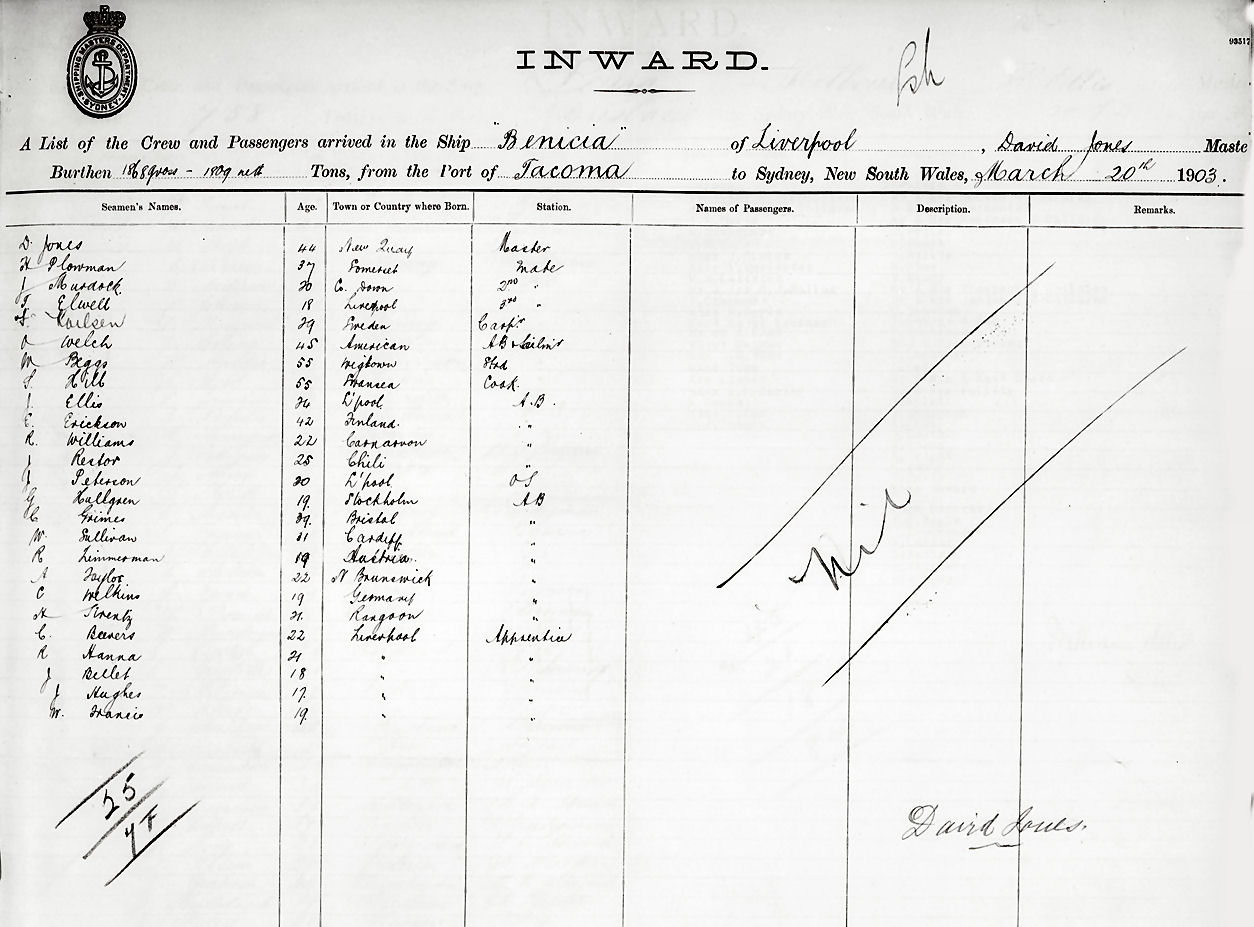 SHIPPING MASTERS DEPARTMENT SYDNEY
93517
INWARD.
A List of the Crew and Passengers arrived in the Ship "Benicia" of Liverpool, David Jones Maste
Burthen gross - 1809 nett Tons, from the Port of Tacoma to Sydney, New South Wales, March 20th 1903.
Seamen's Names. Age. Town or Country where Born. Station. Names of Passengers. Description. Remarks.
D. Jones 44 New Quay Master
H Plowman 37 Somerset Mate
J Murdock 30 Co. Down 2nd "
T Elwell 18 Liverpool 3rd "
Karlsen 29 Sweden Carp'r
O Welch 45 American AB &
W Beggs 55 Wigtown Std
S Hill 55 Swansea Cook.
J Ellis 24 L'pool A.B.
E. Erickson 42 Finland. "
R. Williams 22 Carnarvon "
J Restor 25 Chili "
J Peterson 20 L'pool OS
G Hallgren 19 Stockholm AB
C Grimes 39 Bristol "
W. Sullivan 31 Cardiff "
R Zimmerman 19 Austria. "
A Taylor 22 N Brunswick "
C Welkins 19 Germany "
H 21. Rangoon "
C. Beevers 22 Liverpool Apprentice
R Hanna 21 " "
J Billet 18 " "
J Hughes 17. " "
W. Francis 19. " "
Nil
25
David Jones.